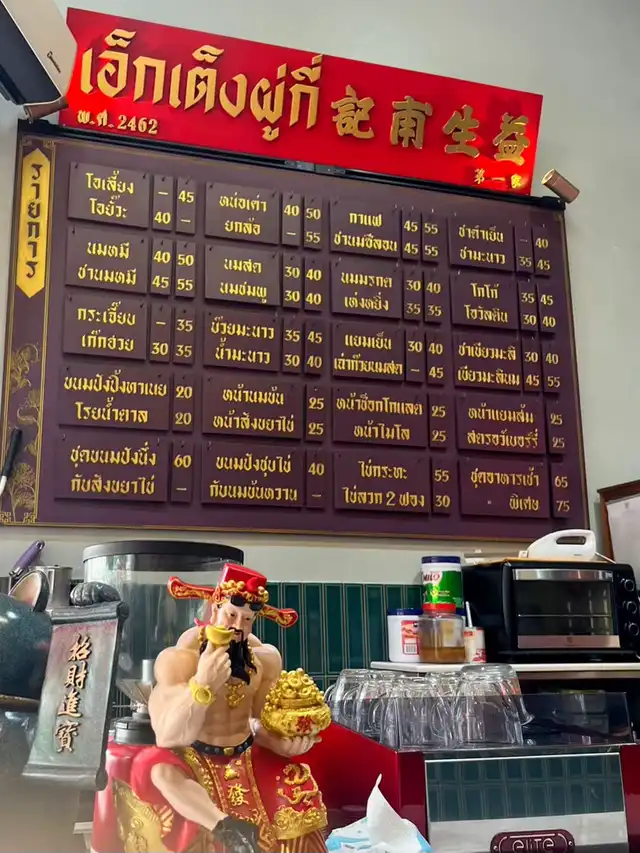 เอ็กเต็งผู่กี่ 記甫生益
พ.ศ. 2462
第一家
รายการ
โอเลี้ยง – 45
โอยั๊วะ 40 –
หน่อเค่า 40 50
ยกล้อ – 55
กาแฟ 45 55
ชานมซีลอน 45 55
ชาดำเย็น – 40
ชามะนาว 35 45
นมหมี 40 50
ชานมหมี 45 55
นมสด 30 40
นมชมพู 30 40
นมมรกต 30 40
เห่งหยิ่ง 35 35
โกโก้ 35 45
โอวัลติน 30 40
กระเจี๊ยบ – 35
เก๊กฮวย 30 35
บ๊วยมะนาว 35 45
น้ำมะนาว 30 40
แยมเย็น 30 40
เฉาก๊วยนมสด – 45
ชาเขียวมะลิ 30 40
เขียวมะลินม 45 55
ขนมปังปิ้งทาเนย 20
โรยน้ำตาล 20
หน้านมข้น 25
หน้าสังขยาไข่ 25
หน้าช็อกโกแลต 25
หน้าไมโล 25
หน้าแยมส้ม 25
สตรอว์เบอร์รี่ 25
ชุดขนมปังนึ่ง 60
กับสังขยาไข่ –
ขนมปังชุบไข่ 40
กับนมข้นหวาน –
ไข่กระทะ 55
ไข่ลวก 2 ฟอง 30
ชุดอาหารเช้า 65
พิเศษ 75
招財進寶
MILO
發
ELITE